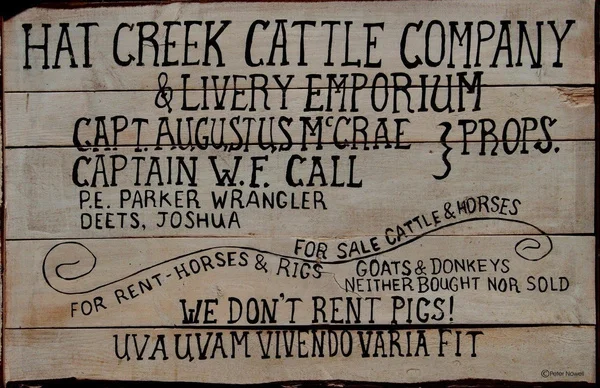 HAT CREEK CATTLE COMPANY
& LIVERY EMPORIUM
CAPT. AUGUSTUS McCRAE } PROPS.
CAPTAIN W.F. CALL
P.E. PARKER WRANGLER
DEETS, JOSHUA
FOR SALE CATTLE & HORSES
FOR RENT-HORSES & RIGS
GOATS & DONKEYS
NEITHER BOUGHT NOR SOLD
WE DON'T RENT PIGS!
UVA UVAM VIVENDO VARIA FIT
©Peter Nowell